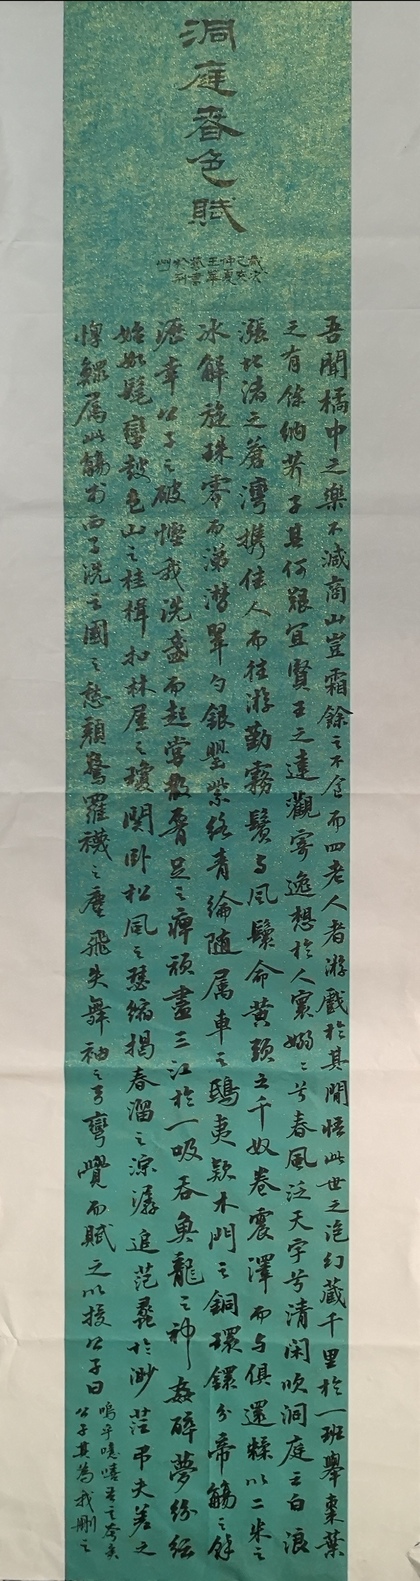 洞庭春色賦
歲次
己亥
仲夏
王軍
敬書
於荊
州
吾聞橘中之樂不減商山豈霜餘之不食而四老人者游戲於其間悟此世之泡幻藏千里於一班舉棗葉
之有餘納芥子其何艱宜賢王之達觀寄逸想於人寰嫋嫋兮春風泛天宇兮清閑吹洞庭之白浪
漲北渚之蒼灣携佳人而往游勤霧鬢與風鬟命黃頭之千奴卷震澤而與俱還糅以二米之
冰解旋珠零而涕潸翠勺銀罌紫絡青綸隨屬車之鴟夷款木門之銅環鏍分帝觴之餘
瀝幸公子之破慳我洗盞而起嘗散腰足之痺頑盡三江於一吸吞魚龍之神姦醉夢紛紜
始如髦蠻鼓包山之桂楫扣林屋之瓊関卧松風之瑟縮揭春溜之淙潺追范蠡於渺茫弔夫差之
惸鰥属此觴於西子洗亡國之愁顏驚羅襪之塵飛失舞袖之弓彎覺而賦之以授公子曰
嗚乎噫嘻吾言夸矣
公子其為我刪之